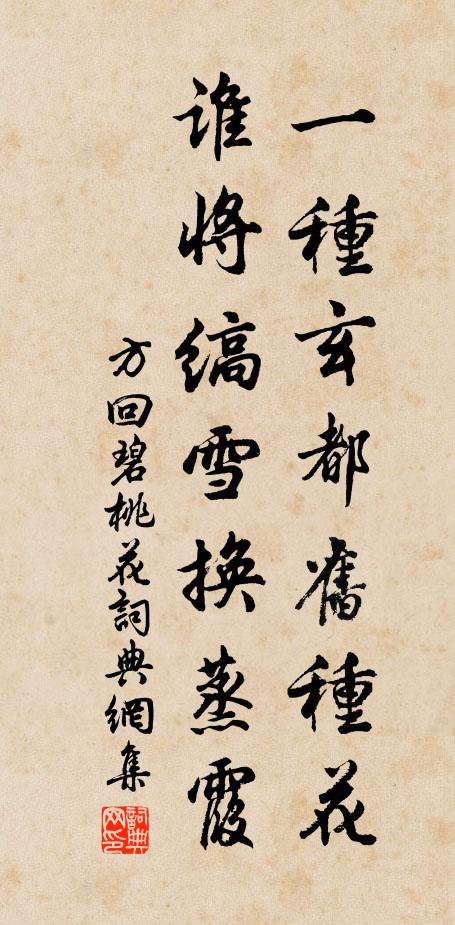 一種玄都舊種花
誰將縞雪換蒸霞
方回碧桃花詞典網集
詞典网印